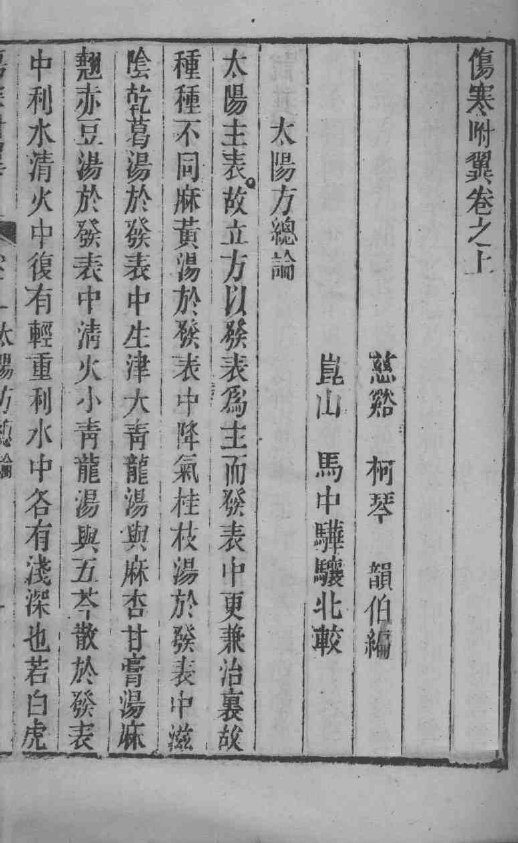 傷寒附翼卷之上
慈谿 柯琴 韻伯編
崑山 馬中驊驤北較
太陽方總論
太陽主表。故立方以發表爲主而發表中更兼治裏故
種種不同麻黃湯於發表中降氣桂枝湯於發表中滋
陰乾葛湯於發表中生津大青龍湯與麻杏甘膏湯麻
翹赤豆湯於發表中清火小青龍湯與五苓散於發表
中利水清火中復有輕重利水中各有淺深也若白虎
太陽方總論